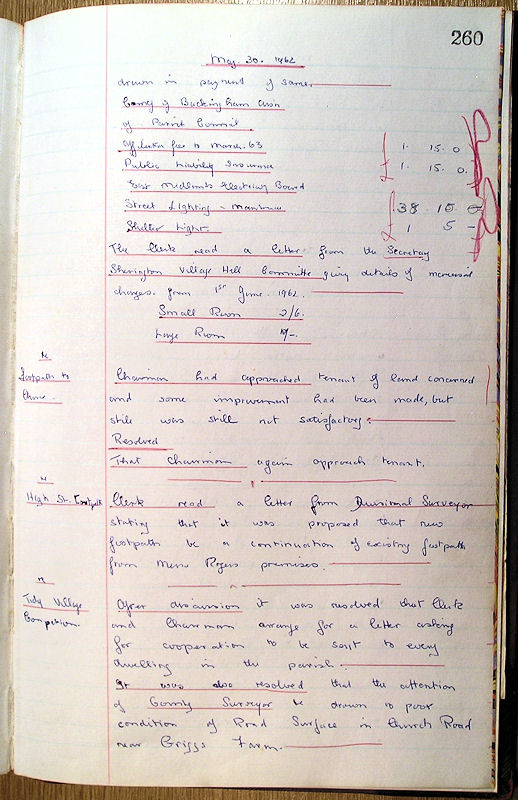 260
May. 30. 1962
drawn in payment of same.
County of Buckingham Assn
of Parish Council
Affiliation fee to March. 63 £ 1. 15. 0
Public Liability Insurance 1. 15. 0.
East Midlands Electricity Board
Street Lighting - Maintenance £ 38 10 0
Shelter Light. 1 5 -
The Clerk read a letter from the Secretary
Sherington Village Hall Committee giving details of increased
charges. from 1st June. 1962.
Small Room 2/6.
Large Room
Footpath to
Chairman had approached tenant of land concerned
and some improvement had been made, but
stile was still not satisfactory.
Resolved
That Chairman again approach tenant.
High St. Footpath
Clerk read a letter from Divisional Surveyor
stating that it was proposed that new
footpath be a continuation of existing footpath
from Messrs Rogers premises.
Tidy Village
Competition.
After discussion it was resolved that Clerk
and Chairman arrange for a letter asking
for cooperation to be sent to every
dwelling in the parish.
It was also resolved that the attention
of County Surveyor be drawn to poor
condition of Road Surface in Church Road
near Griggs Farm.